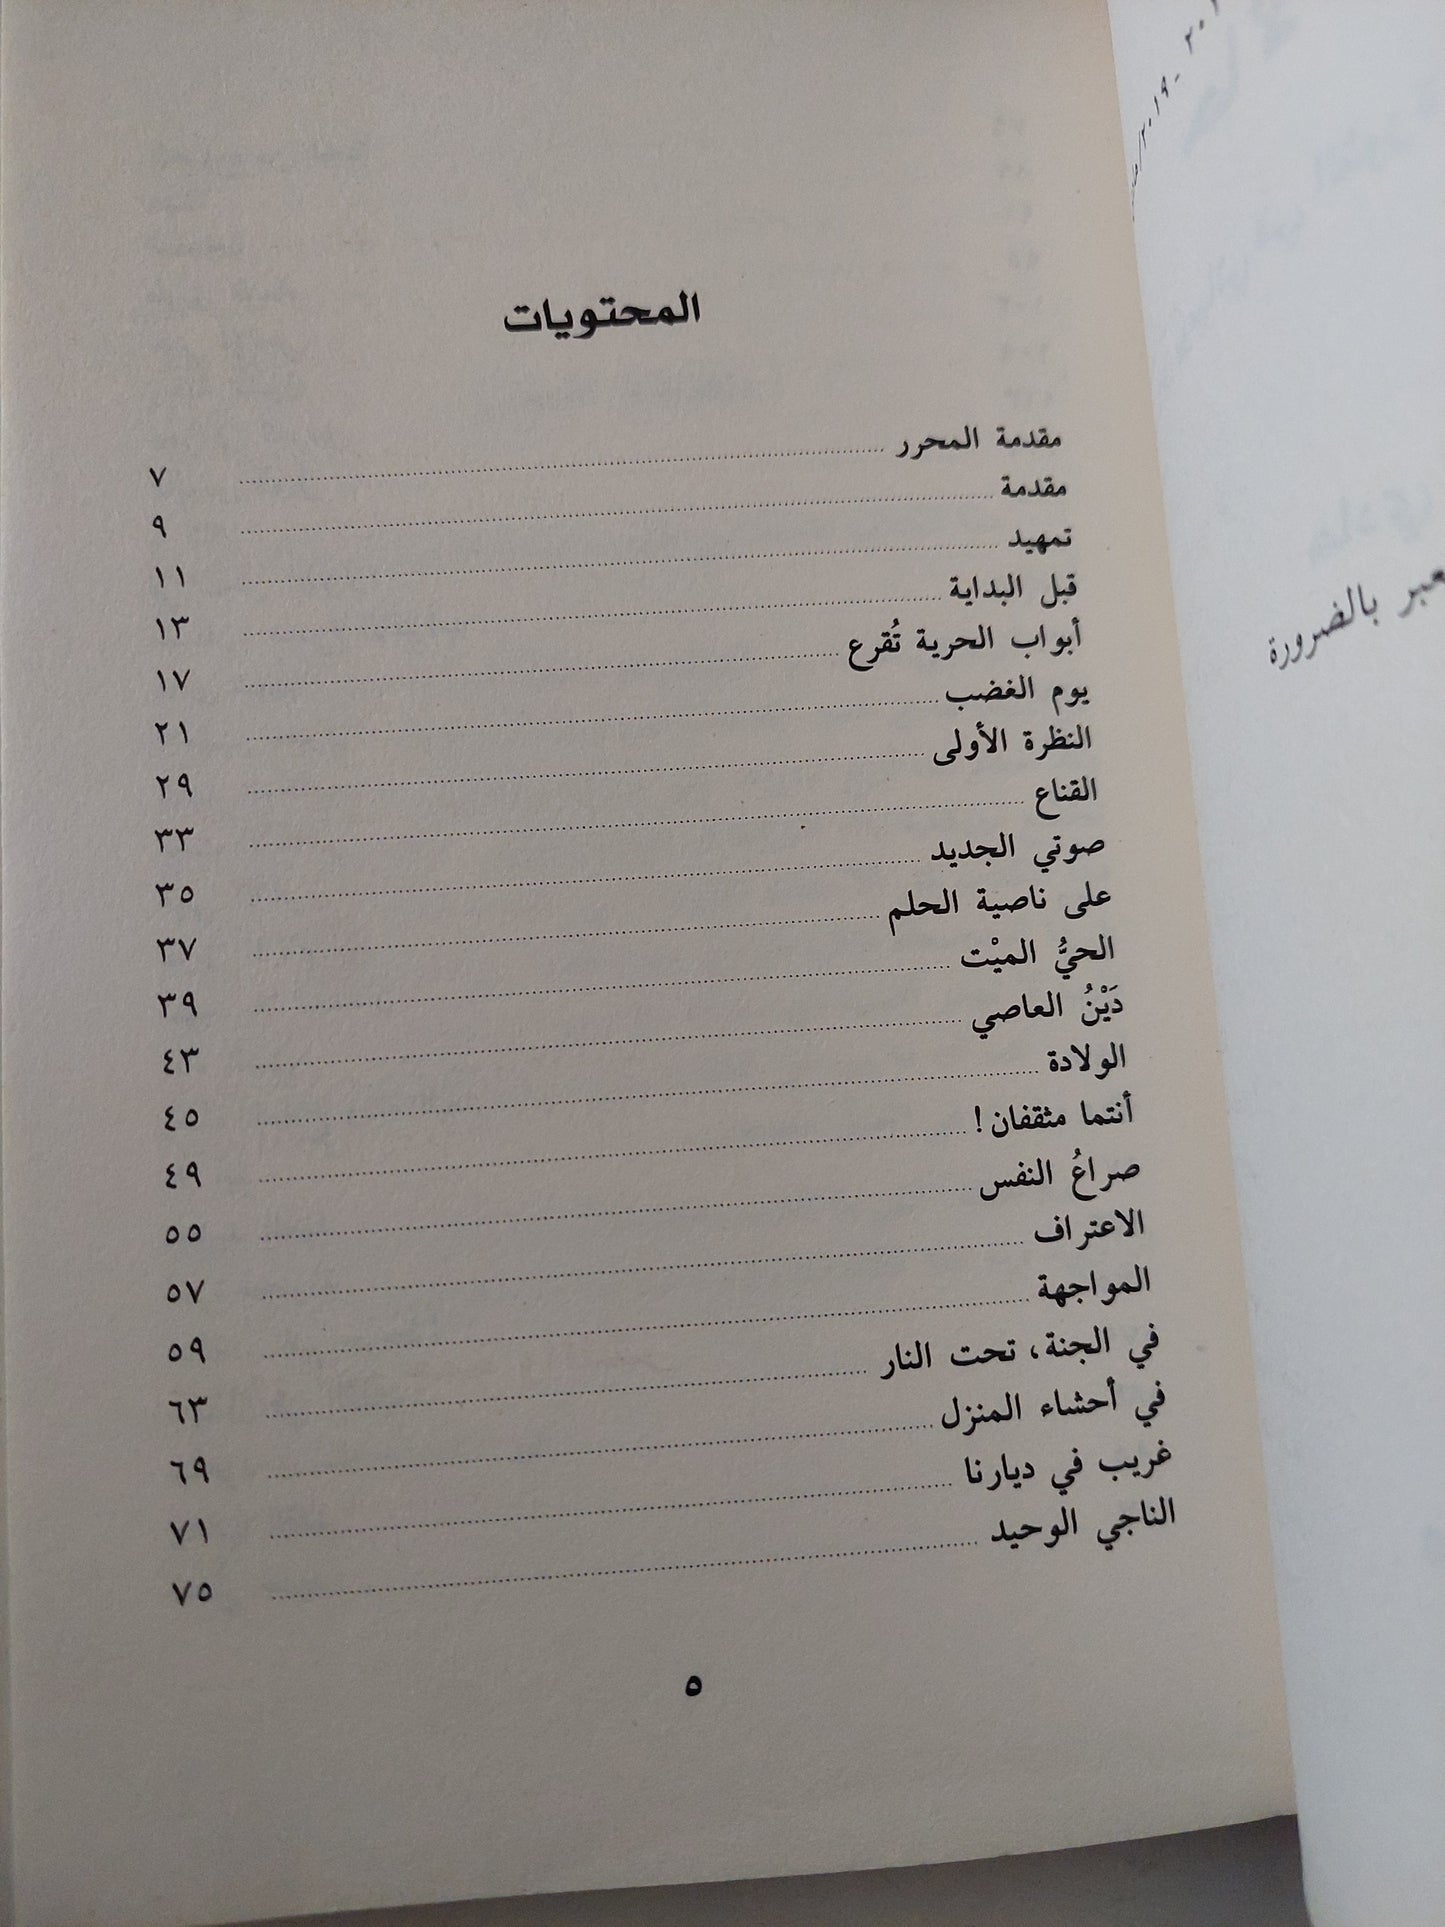 المحتويات
مقدمة المحرر ........ ٧
مقدمة ........ ٩
تمهيد ........ ١١
قبل البداية ........ ١٣
أبواب الحرية تُقرع ........ ١٧
يوم الغضب ........ ٢١
النظرة الأولى ........ ٢٩
القناع ........ ٣٣
صوتي الجديد ........ ٣٥
على ناصية الحلم ........ ٣٧
الحيُّ الميْت ........ ٣٩
دَيْنُ العاصي ........ ٤٣
الولادة ........ ٤٥
أنتما مثقفان! ........ ٤٩
صراعُ النفس ........ ٥٥
الاعتراف ........ ٥٧
المواجهة ........ ٥٩
في الجنة، تحت النار ........ ٦٣
في أحشاء المنزل ........ ٦٩
غريب في ديارنا ........ ٧١
الناجي الوحيد ........ ٧٥
٥
بالضرورة